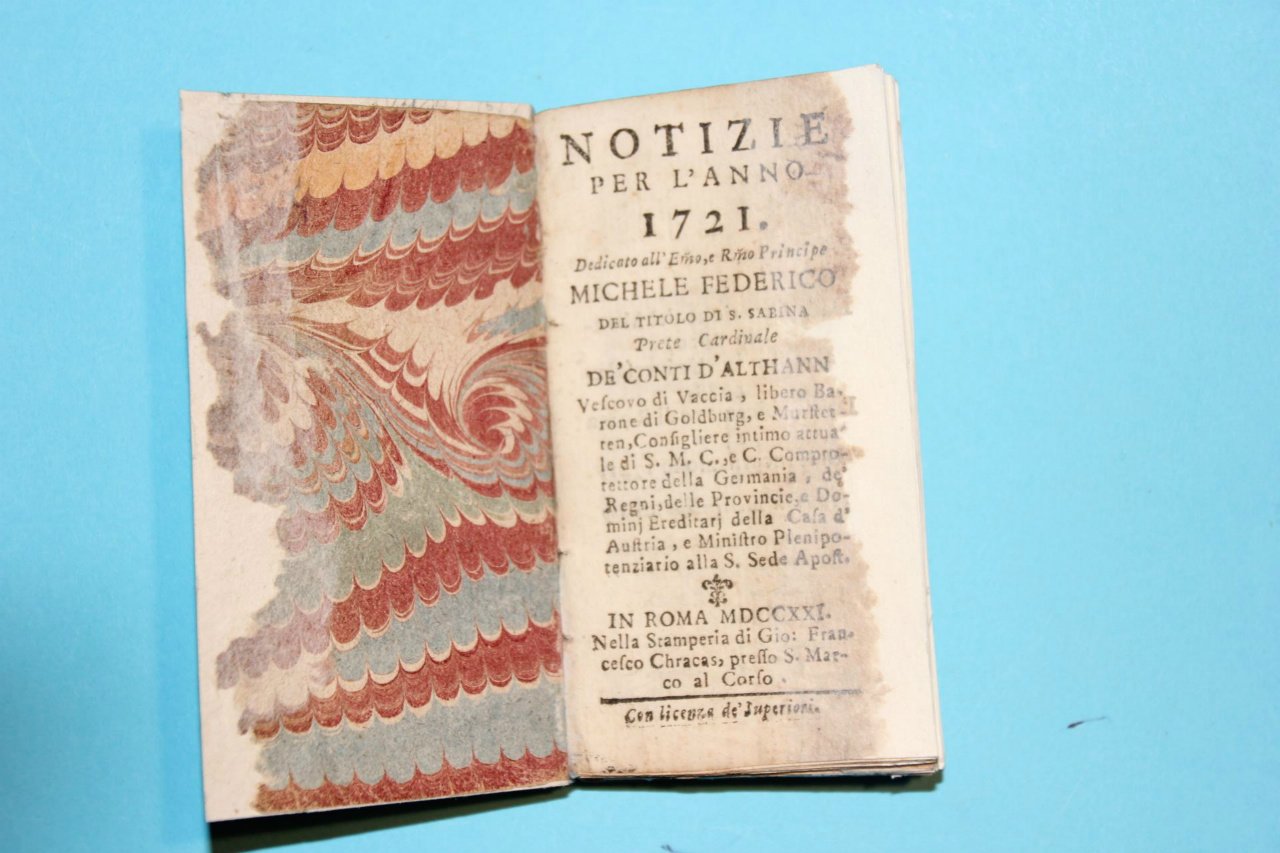 NOTIZIE
PER L'ANNO
1721.
Dedicato all'Em̃o, e Rm̃o Principe
MICHELE FEDERICO
DEL TITOLO DI S. SABINA
Prete Cardinale
DE'CONTI D'ALTHANN
Veſcovo di Vaccia, libero Ba-
rone di Goldburg, e Murſtet-
ten, Conſigliere intimo attua-
le di S. M. C., e C. Compro-
tettore della Germania, de'
Regni, delle Provincie, e Do-
minj Ereditarj della Caſa d'
Auſtria, e Miniſtro Plenipo-
tenziario alla S. Sede Apoſt.
IN ROMA MDCCXXI.
Nella Stamperia di Gio: Fran-
ceſco Chracas, preſſo S. Mar-
co al Corſo.
Con licenza de' Superiori.